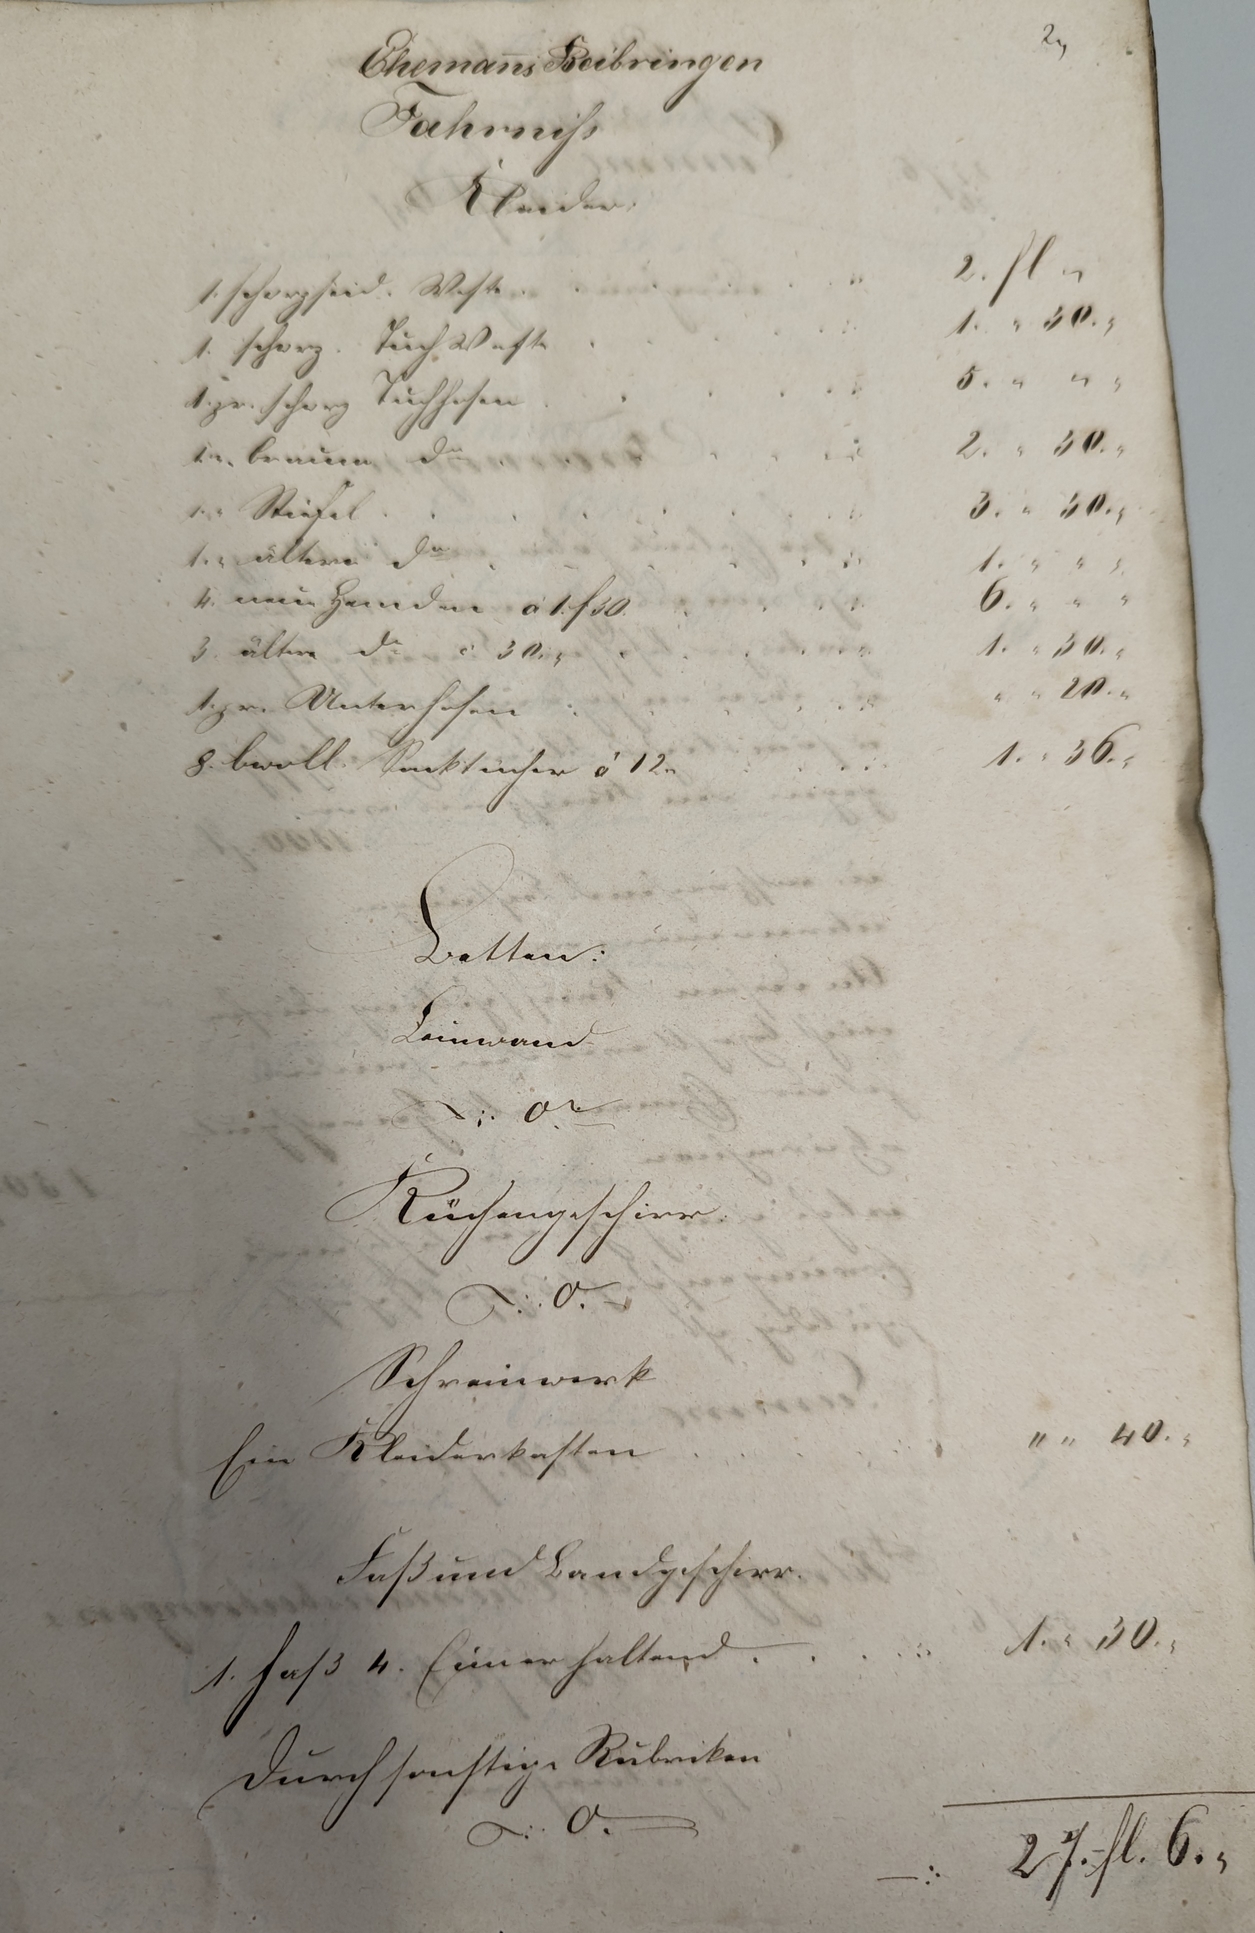 2,
Ehemanns Beibringen
Fahrniß
Kleider.
1. schwz seid. Weste . . . . . . " 2. fl "
1. schwarz. Tuch Weste . . . . . . 1. " 30. "
1. pr. schwz Tuchhosen . . . . . . 5. " " "
1. " braune do . . . . . . 2. " 30. "
1. " Stiefel . . . . . . 3. " 30. "
1. " ältere do . . . . . . 1. " " "
4. neue Hemden à 1. f 30. . . . . 6. " " "
3. ältere do à 30. " . . . . . 1. " 30. "
1. pr. Unterhosen . . . . . " " 20. "
8. bwoll. Sacktücher à 12. " . . . . 1. " 36. "
Betten:
Leinwand
T. : 0.
Küchengeschirr.
T. : 0.
Schreinwerk
Ein Kleiderkasten . . . . . . " " 40. "
Faß und Bandgeschirr.
1. Faß 4. Eimer haltend . . . . . . 1. " 30. "
Durch sonstige Rubriken
T. : 0.
—: 27. fl. 6. "